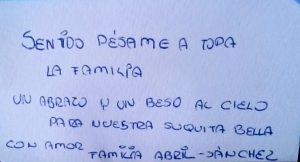 SENTIDO PÉSAME A TODA
LA FAMILIA
UN ABRAZO Y UN BESO AL CIELO
PARA NUESTRA SUQUITA BELLA
CON AMOR FAMILIA ABRIL-SÁNCHEZ